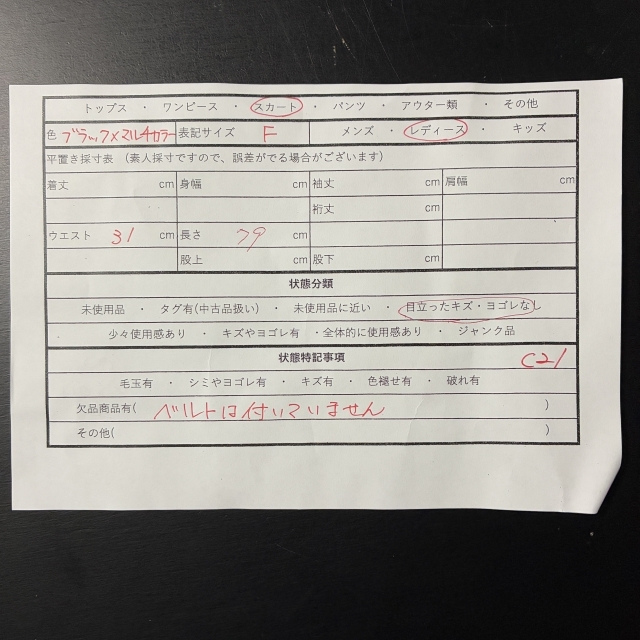 トップス ・ ワンピース ・ スカート ・ パンツ ・ アウター類 ・ その他
色 ブラック×マルチカラー 表記サイズ F メンズ ・ レディース ・ キッズ
平置き採寸表 (素人採寸ですので、誤差がでる場合がございます)
着丈 cm 身幅 cm 袖丈 cm 肩幅 cm
裄丈 cm
ウエスト 31 cm 長さ 79 cm
股上 cm 股下 cm
状態分類
未使用品 ・ タグ有(中古品扱い) ・ 未使用品に近い ・ 目立ったキズ・ヨゴレなし
少々使用感あり ・ キズやヨゴレ有 ・全体的に使用感あり ・ ジャンク品
状態特記事項 C21
毛玉有 ・ シミやヨゴレ有 ・ キズ有 ・ 色褪せ有 ・ 破れ有
欠品商品有( ベルトは付いていません )
その他( )